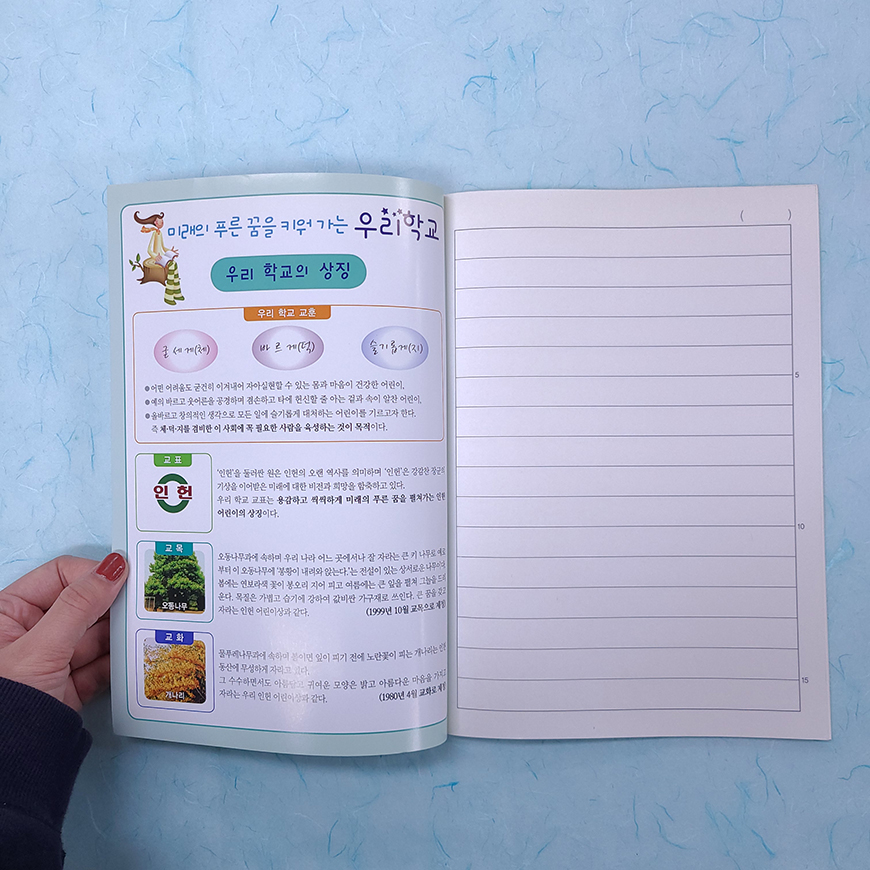 미래의 푸른 꿈을 키워 가는 우리학교
우리 학교의 상징
우리 학교 교훈
굳 세 게(체)
바 르 게(덕)
슬기롭게(지)
어떤 어려움도 굳건히 이겨내어 자아실현할 수 있는 몸과 마음이 건강한 어린이,
예의 바르고 웃어른을 공경하며 겸손하고 타에 헌신할 줄 아는 겉과 속이 알찬 어린이,
올바르고 창의적인 생각으로 모든 일에 슬기롭게 대처하는 어린이를 기르고자 한다.
즉 체·덕·지를 겸비한 이 사회에 꼭 필요한 사람을 육성하는 것이 목적이다.
교 표
인 헌
'인헌'을 둘러싼 원은 인헌의 오랜 역사를 의미하며 '인헌'은 강감찬 장군의
기상을 이어받은 미래에 대한 비전과 희망을 함축하고 있다.
우리 학교 교표는 용감하고 씩씩하게 미래의 푸른 꿈을 펼쳐가는 인헌
어린이의 상징이다.
교 목
오동나무
오동나무과에 속하며 우리 나라 어느 곳에서나 잘 자라는 큰 키 나무로 예로
부터 이 오동나무에 '봉황이 내려와 앉는다.'는 전설이 있는 상서로운 나무이다.
봄에는 연보라색 꽃이 봉오리 지어 피고 여름에는 큰 잎을 펼쳐 그늘을 드리
운다. 목질은 가볍고 습기에 강하여 값비싼 가구재로 쓰인다. 큰 꿈을 갖고
자라는 인헌 어린이상과 같다. (1999년 10월 교목으로 제정)
교 화
개나리
물푸레나무과에 속하며 봄이면 잎이 피기 전에 노란꽃이 피는 개나리는 인헌
동산에 무성하게 자라고 있다.
그 수수하면서도 아름답고 귀여운 모양은 밝고 아름다운 마음을 가지고
자라는 우리 인헌 어린이상과 같다. (1980년 4월 교화로 제정)
( )
5
10
15